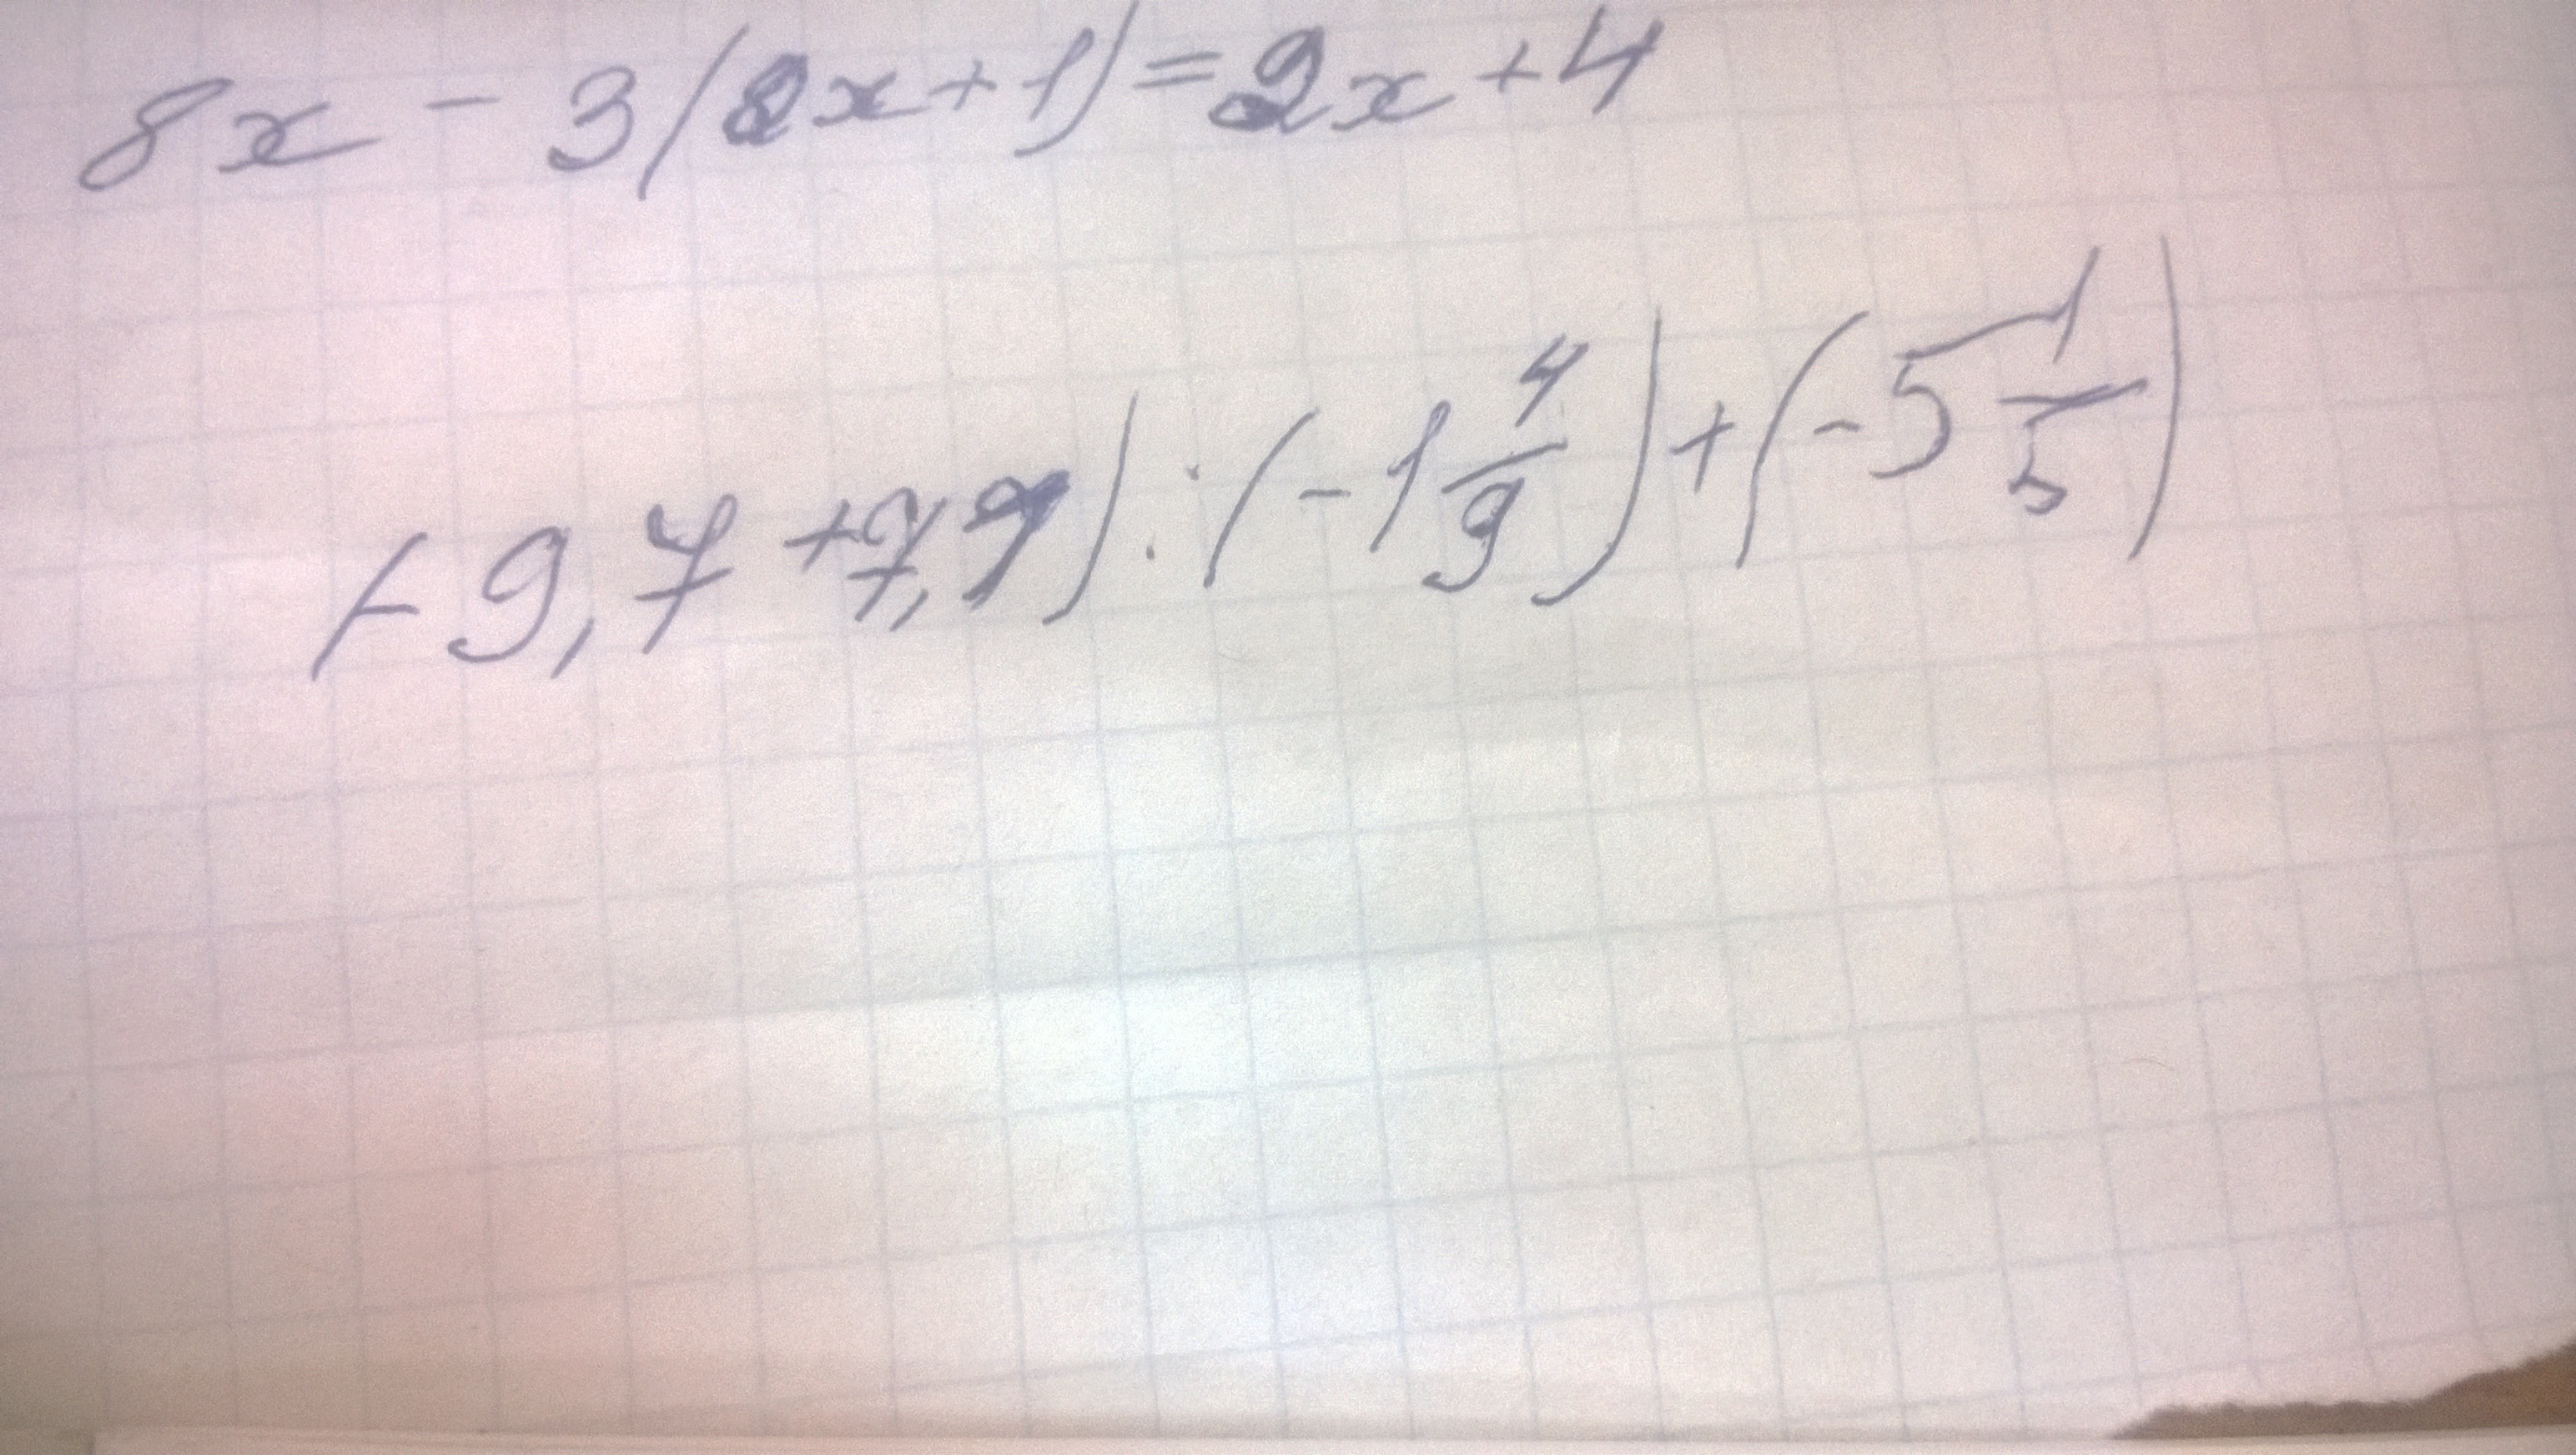 8x - 3(2x+1)=2x+4
(-9,7 +7,9):(-1 4/9)+(-5 1/5)